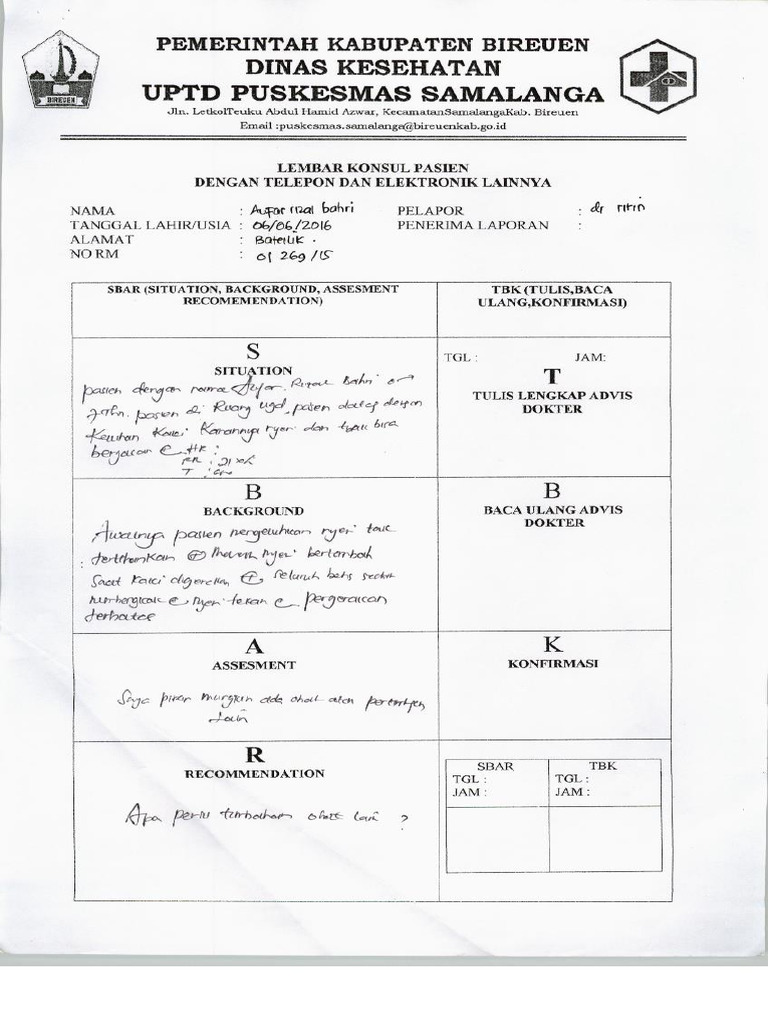 PEMERINTAH KABUPATEN BIREUEN
DINAS KESEHATAN
UPTD PUSKESMAS SAMALANGA
Jln. LetkolTeuku Abdul Hamid Azwar, KecamatanSamalangaKab. Bireuen
Email :puskesmas.samalanga@bireuenkab.go.id
BIREUEN
LEMBAR KONSUL PASIEN
DENGAN TELEPON DAN ELEKTRONIK LAINNYA
NAMA : Aufar rizal bahri
PELAPOR : dr ririn
TANGGAL LAHIR/USIA : 06/06/2016
PENERIMA LAPORAN :
ALAMAT :
NO RM : 01 269/15
SBAR (SITUATION, BACKGROUND, ASSESMENT
RECOMEMENDATION)
TBK (TULIS,BACA
ULANG,KONFIRMASI)
S
SITUATION
pasien dengan nama Aufar Rizal Bahri
7 thn. pasien di Ruang ugd, pasien datang dengan
keluhan kaki kanannya nyeri dan tidak bisa
berjalan HR :
RR : 21 x/i
T :
TGL : JAM:
T
TULIS LENGKAP ADVIS
DOKTER
B
BACKGROUND
Awalnya pasien mengeluhkan nyeri tak
tertahankan nyeri bertambah
saat kaki digerakan seluruh betis
nyeri tekan pergerakan
terbatas
B
BACA ULANG ADVIS
DOKTER
A
ASSESMENT
Saya pikir mungkin ada obat atau
lain
K
KONFIRMASI
R
RECOMMENDATION
Apa perlu tambahan obat lain ?
SBAR
TGL :
JAM :
TBK
TGL :
JAM :